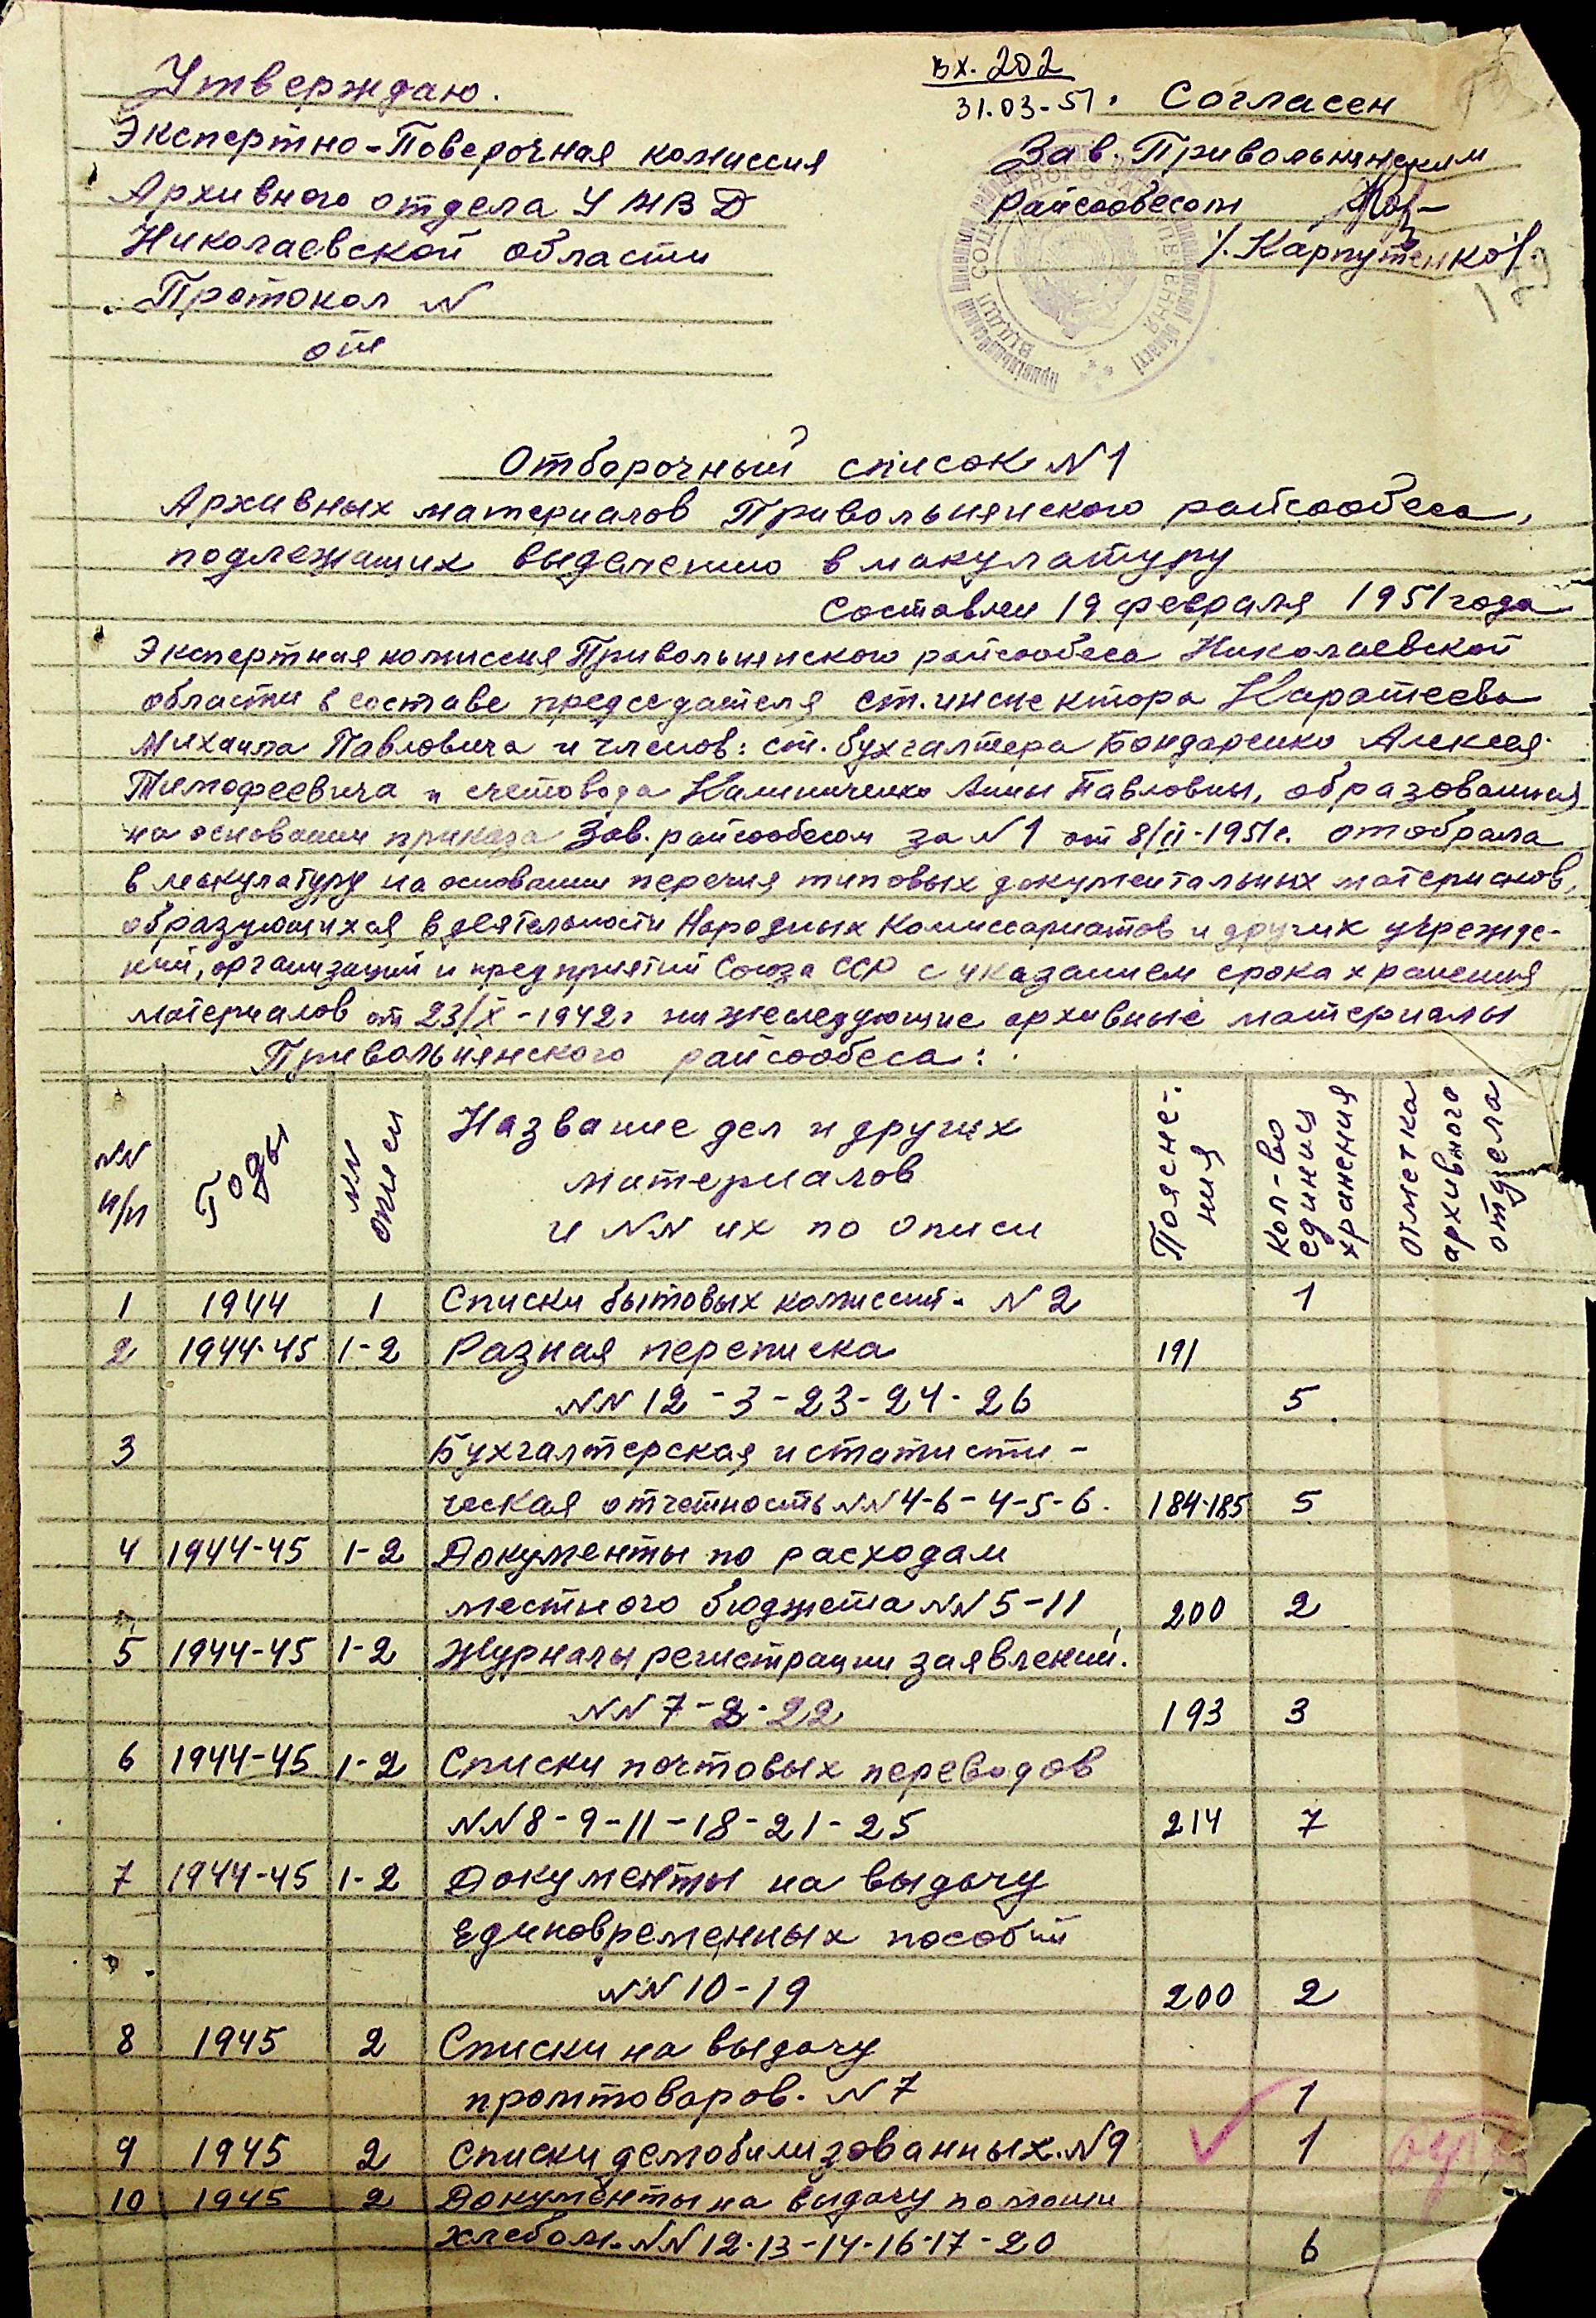 вх. 202
31.03-51. Согласен
Утверждаю.
Экспертно-Поверочная комиссия
Архивного отдела УМВД
Николаевской области
Протокол N
от
Зав. Привольнянским
райсобесом
/. Карпутенко/.
129
Отборочный список N1
Архивных материалов Привольнянского райсобеса,
подлежащих выделению в макулатуру
Составлен 19 февраля 1951 года
Экспертная комиссия Привольнянского райсобеса Николаевской
области в составе председателя ст. инспектора Каратеева
Михаила Павловича и членов: ст. бухгалтера Бондаренко Алексея
Тимофеевича и счетовода Калиниченко Анны Павловны, образованная
на основании приказа Зав. райсобесом за N1 от 8/II-1951г. отобрала
в макулатуру на основании перечня типовых документальных материалов,
образующихся в деятельности Народных Комиссариатов и других учрежде-
ний, организаций и предприятий Союза ССР с указанием срока хранения
материалов от 23/X-1942г нижеследующие архивные материалы
Привольнянского райсобеса:
NN п/п Годы NN описи Название дел и других материалов и NN их по описи Поясне-ния Кол-во единиц хранения Отметка архивного отдела
1 1944 1 Списки бытовых комиссий. N2 1
2 1944-45 1-2 Разная переписка 191
NN 12-3-23-24-26 5
3 Бухгалтерская и статисти-
ческая отчетность NN 4-6-4-5-6. 184-185 5
4 1944-45 1-2 Документы по расходам
местного бюджета NN 5-11 200 2
5 1944-45 1-2 Журналы регистрации заявлений.
NN 7-2-22 193 3
6 1944-45 1-2 Списки почтовых переводов
NN 8-9-11-18-21-25 214 7
7 1944-45 1-2 Документы на выдачу
единовременных пособий
NN 10-19 200 2
8 1945 2 Списки на выдачу
промтоваров. N7 1
9 1945 2 Списки демобилизованных. N9 1
10 1945 2 Документы на выдачу помощи
хлебом. NN 12-13-14-16-17-20 6